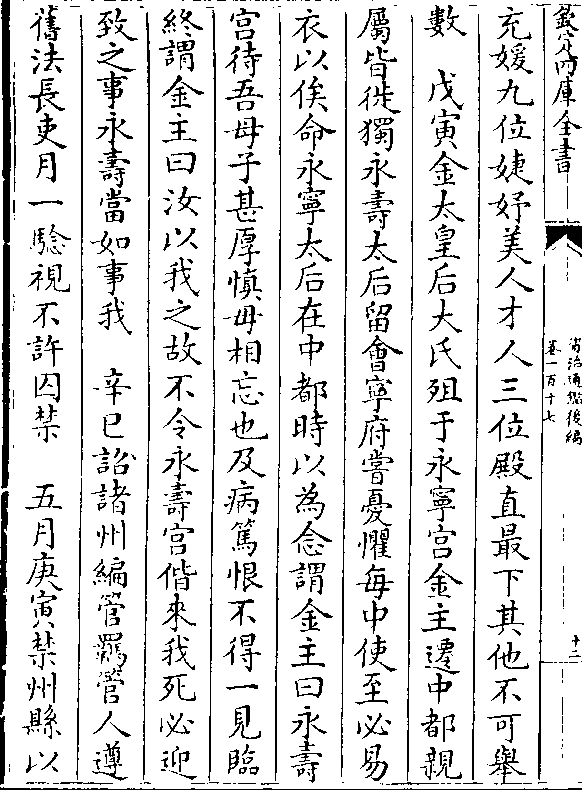 欽定四庫全書
資治通鑑後編
卷一百十七
十二
充媛九位婕妤美人才人三位殿直最下其他不可舉
數　戊寅金太皇后大氏殂于永寧宫金主遷中都親
屬皆徙獨永壽太后留會寧府嘗憂懼每中使至必易
衣以俟命永寧太后在中都時以為念謂金主曰永壽
宫待吾母子甚厚慎毋相忘也及病篤恨不得一見臨
終謂金主曰汝以我之故不令永壽宫偕來我死必迎
致之事永壽當如事我　辛巳詔諸州編管羈管人遵
舊法長吏月一騐視不許囚禁　五月庚寅禁州縣以